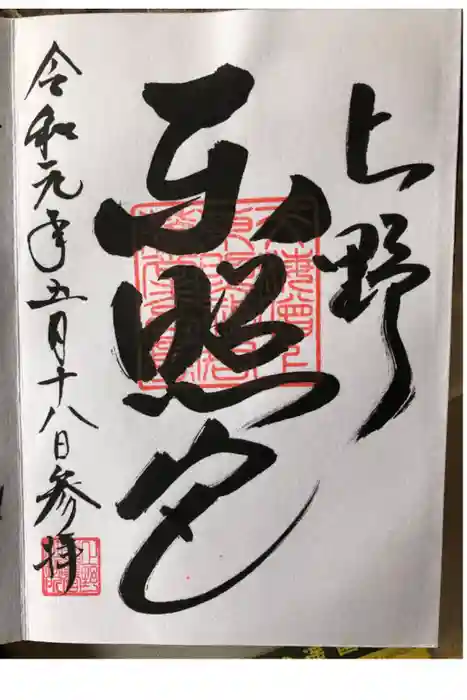 上野
東照宮
令和元年五月十八日参拝